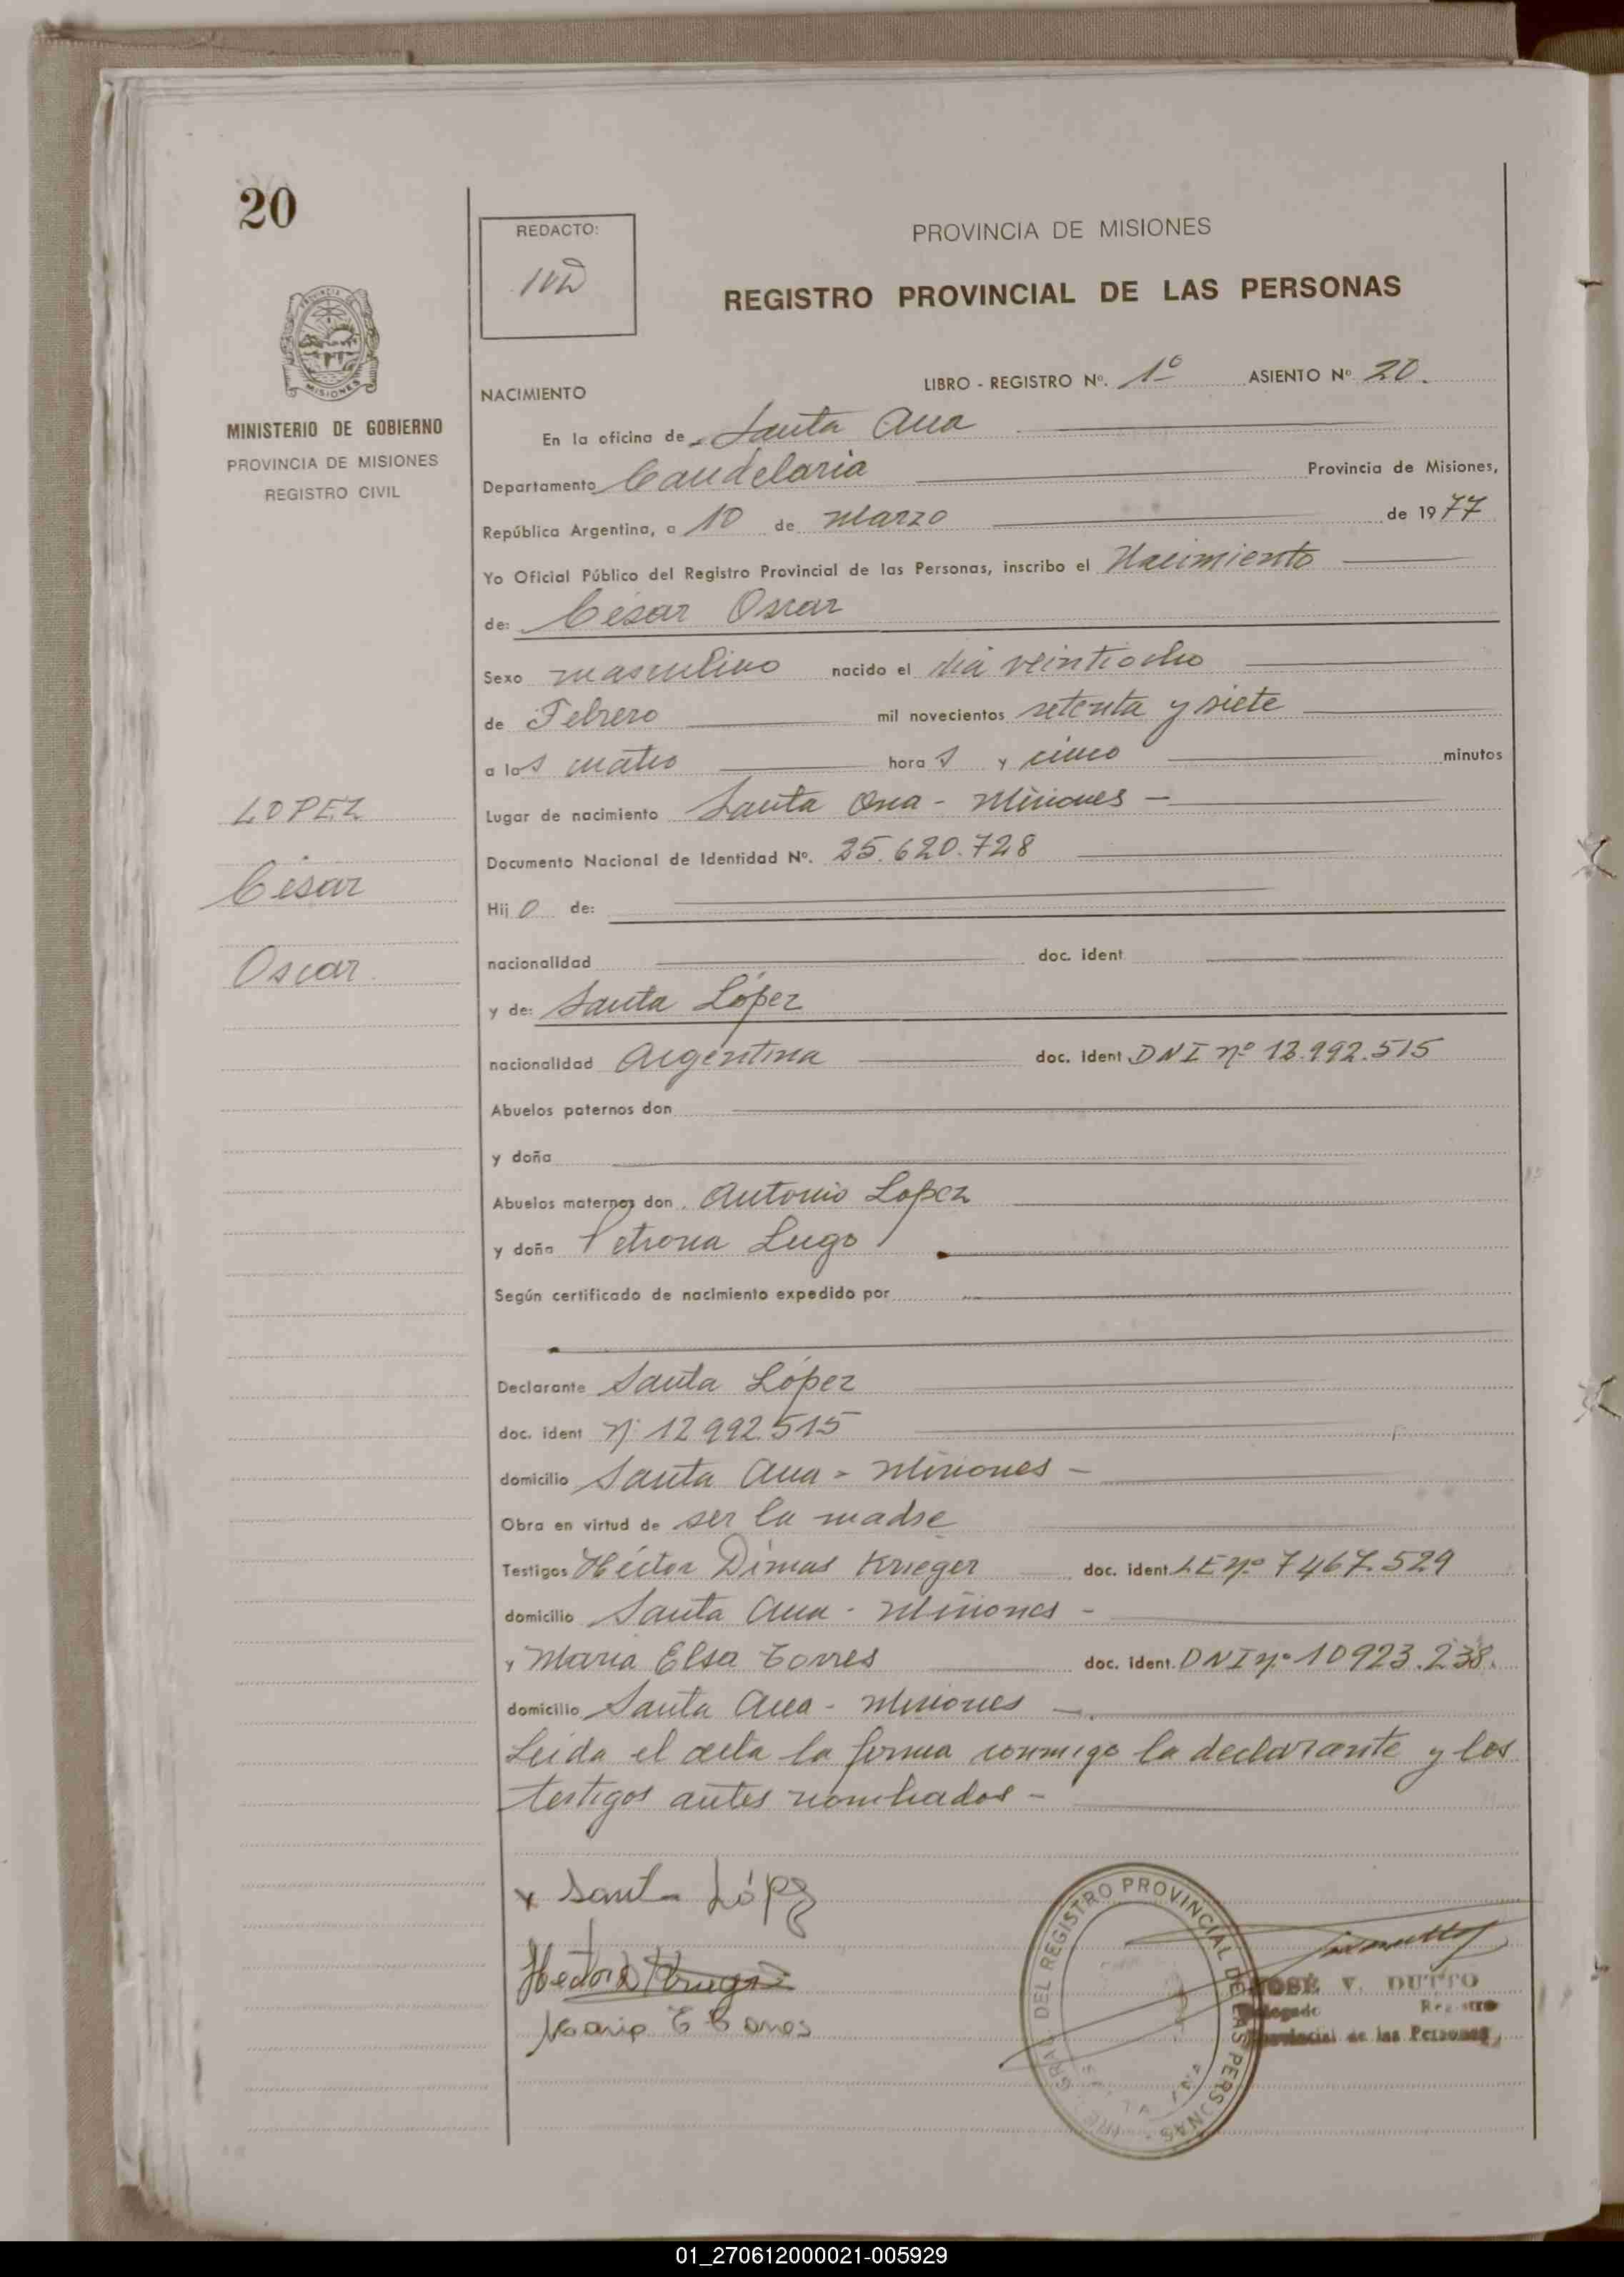 20
PROVINCIA DE MISIONES
MINISTERIO DE GOBIERNO
PROVINCIA DE MISIONES
REGISTRO CIVIL
REDACTO:
PROVINCIA DE MISIONES
REGISTRO PROVINCIAL DE LAS PERSONAS
NACIMIENTO LIBRO - REGISTRO Nº. 1º ASIENTO Nº 20.
En la oficina de Santa Ana
Departamento Candelaria Provincia de Misiones,
República Argentina, a 10 de Marzo de 1977
Yo Oficial Público del Registro Provincial de las Personas, inscribo el Nacimiento
de: César Oscar
Sexo masculino nacido el día veintiocho
de Febrero mil novecientos setenta y siete
a las cuatro horas y cinco minutos
Lugar de nacimiento Santa Ana - Misiones -
Documento Nacional de Identidad Nº. 25.620.728
Hijo de:
nacionalidad doc. ident
y de: Santa López
nacionalidad Argentina doc. ident DNI nº 12.992.515
Abuelos paternos don
y doña
Abuelos maternos don Antonio Lopez
y doña Petrona Lugo
Según certificado de nacimiento expedido por
Declarante Santa López
doc. ident Nº 12 992.515
domicilio Santa Ana - Misiones -
Obra en virtud de ser la madre
Testigos Héctor Dimas Krieger doc. ident. LE nº 7467.529
domicilio Santa Ana - Misiones -
y Maria Elsa Torres doc. ident. DNI nº 10923.238.
domicilio Santa Ana - Misiones -
Leída el acta la firma conmigo la declarante y los
testigos antes nombrados -
LOPEZ
César
Oscar
x Santa López
Hector D Krieger
Maria E Torres
DEL REGISTRO PROVINCIAL DE LAS PERSONAS
JOSÉ V. DUTTO
Delegado Registro
Provincial de las Personas
01_270612000021-005929